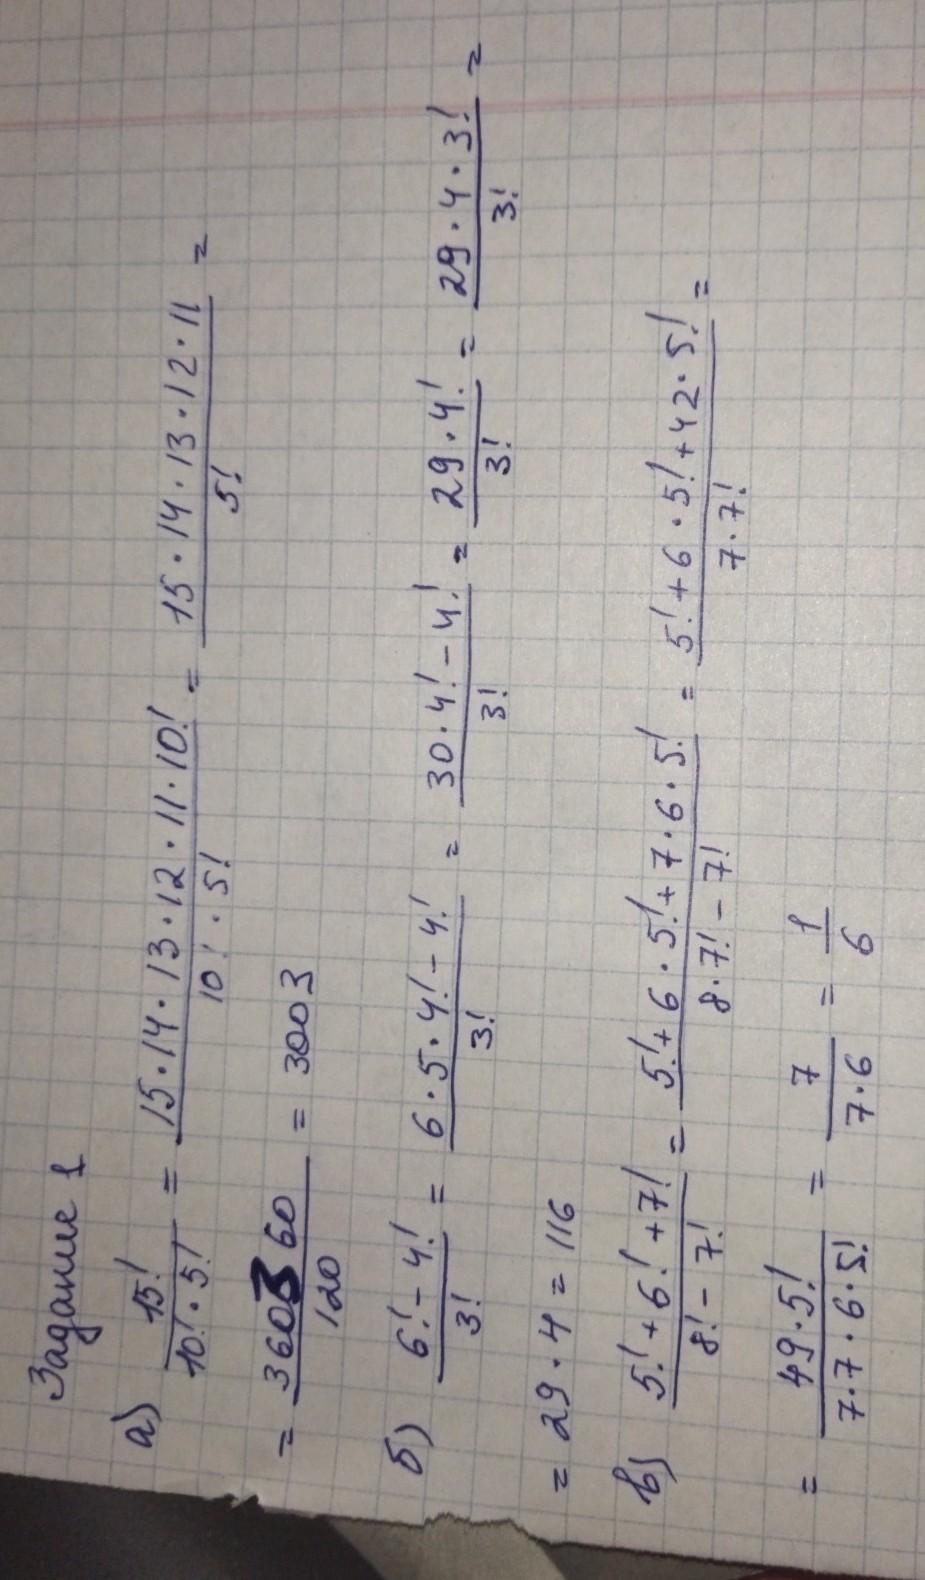 Задание 1
а) 15!/(10!·5!) = (15·14·13·12·11·10!)/(10!·5!) = (15·14·13·12·11)/5! =
= 360360/120 = 3003
б) (6!-4!)/3! = (6·5·4!-4!)/3! = (30·4!-4!)/3! = (29·4!)/3! = (29·4·3!)/3! =
= 29·4 = 116
в) (5!+6!+7!)/(8!-7!) = (5!+6·5!+7·6·5!)/(8·7!-7!) = (5!+6·5!+42·5!)/(7·7!) =
= (49·5!)/(7·7·6·5!) = 7/(7·6) = 1/6